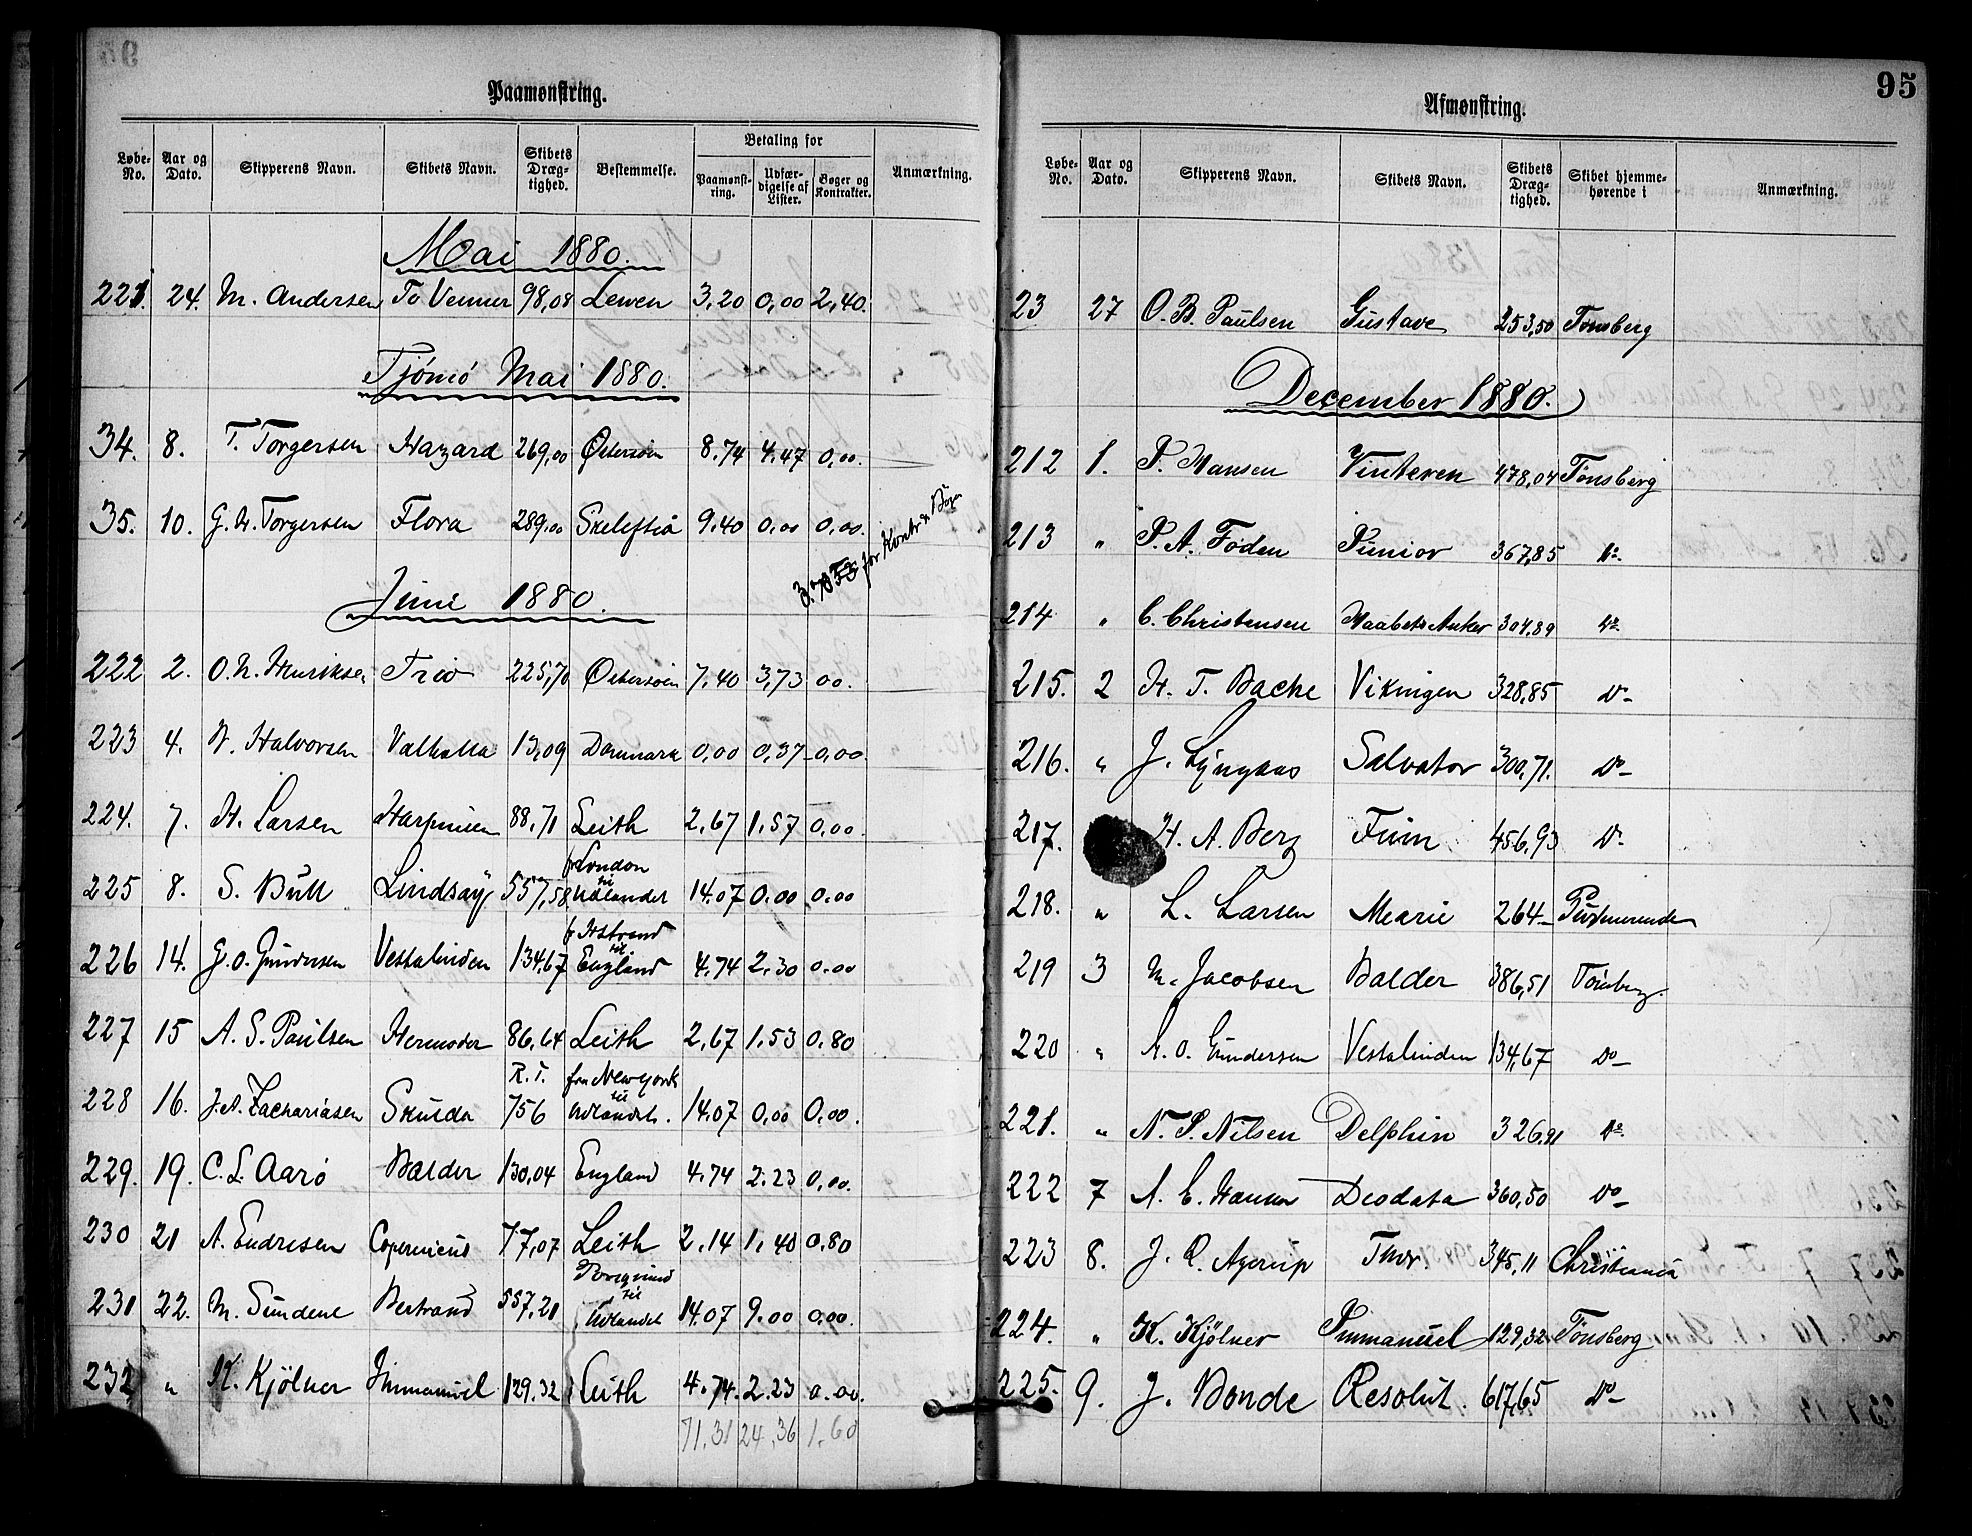 Paamønstring.
Løbe-No. Aar og Dato. Skipperens Navn. Skibets Navn. Skibets Dræg-tighed. Bestemmelse. Betaling for Paamønst-ring. Udfær-digelse af Lister. Bøger og Kontrakter. Anmærkning.
Mai 1880.
221. 24. M. Andersen To Venner 98,08 Lewen 3,20 0,00 2,40.
Tjömö Mai 1880.
34. 8. T. Torgersen Hazard 269,00 Østersøen 8.74 4.47 0,00.
35. 10. G. H. Torgersen Flora 289,00 Skeleftiå 9.40 0,00 0,00.
for Kontr & Bøger
Juni 1880.
222 2. O. N. Henriksen Trio 225,70 Østersøen 7,40 3,73 00.
223 4. N. Halvorsen Valhalla 13,09 Danmark 0,00 0,37 0,00.
224. 7. H. Larsen 88,71 Leith 2,67 1,57 0,00.
225 8. S. Bull Lindsay 557,58 fr London til Udlandet 14.07 0.00 0.00
226 14. G. O. Gundersen Vestalinden 134,67 til England 4,74 2,30 0.00
227 15 A. S. Paulsen Hermoder 86,64 Leith 2,67 1.53 0.80
228 16. J. A. Zachariasen Skulda R. T. 756 fra New York til Udlandet. 14.07 0,00 0,00.
229. 19. C. L. Aarø Balder 130,04 England 4.74 2.23 0,00.
230 21 A. Endresen Copernicus 77,07 Leith 2.14 1,40 0,80
231 22. M. Sundene Bertrand 557,21 Porsgrund til Udlandet 14.07 9.00 0.00.
232 " K. Kjölner Immanuel 129.32 Leith 4.74. 2.23 0.00.
71.31 24,36 1.60
95
Afmønstring.
Løbe-No. Aar og Dato. Skipperens Navn. Skibets Navn. Skibets Dræg-tighed. Skibet hjemme-hørende i Anmærkning.
23 27 O. B. Paulsen Gustave 253,50 Tønsberg
December 1880.
212 1. P. Hansen Vinteren 478,04 Tønsberg
213 " P. A. Foden Junior 367,85 do.
214 " C. Christensen Haabets Anker 304,89 do.
215. 2 H. T. Bache Vikingen 328,85 do-
216. " J. Lyngaas Salvator 300,71. do-
217. H. A. Berg Fiim 456,93 do.
218. " L. Larsen Marie 264-
219 3 M. Jacobsen Balder 386,51 Tönsberg.
220 " A. O. Gundersen Vestalinden 134,67 do-
221. " N. P. Nilsen Delphin 326,91 do.
222 7 A. C. Hansen Deodata 360,50 do-
223 8. J. C. Agerup Thor. 345,11 Christiania
224. " K. Kjölner Immanuel 129,32 Tönsberg
225. 9. J. Bonde Resolut. 617,65 do-